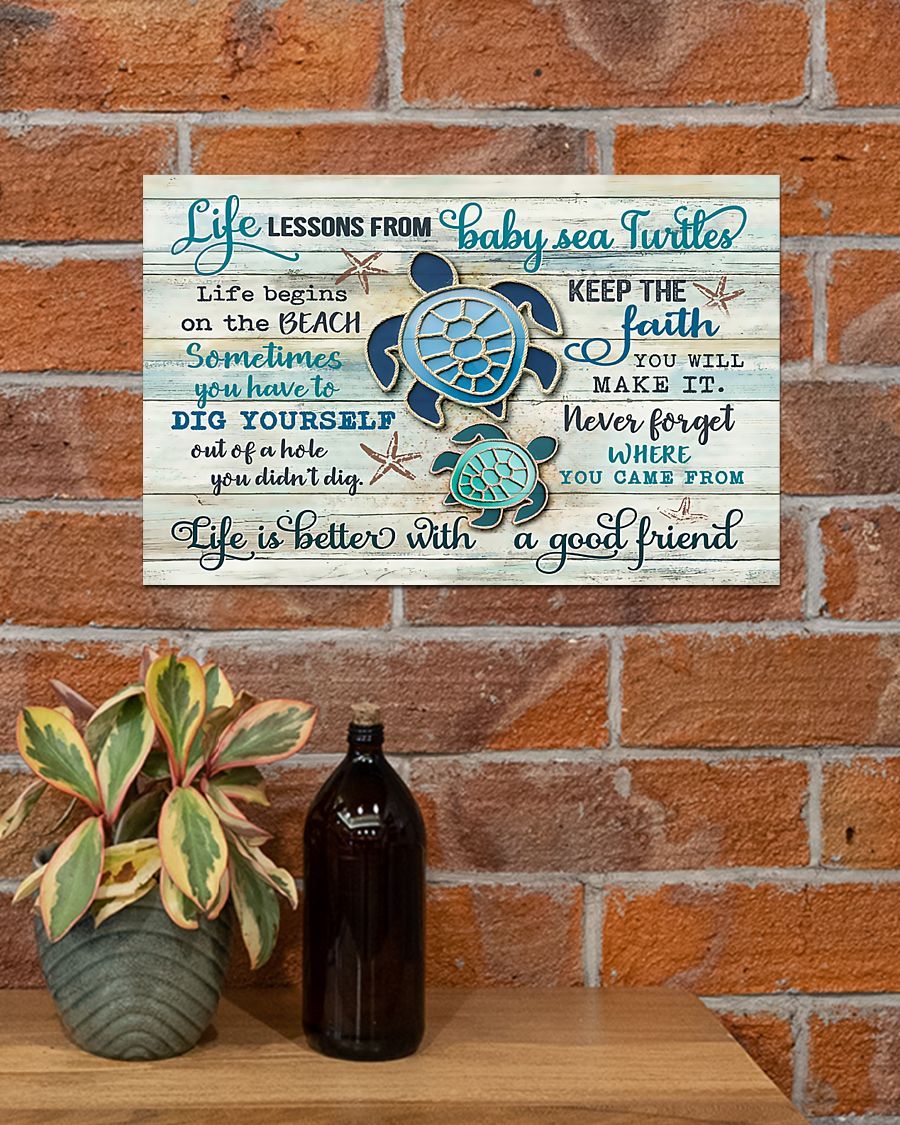 Life LESSONS FROM baby sea Turtles
Life begins
on the BEACH
Sometimes
you have to
DIG YOURSELF
out of a hole
you didn't dig.
KEEP THE
faith
YOU WILL
MAKE IT.
Never forget
WHERE
YOU CAME FROM
Life is better with a good friend